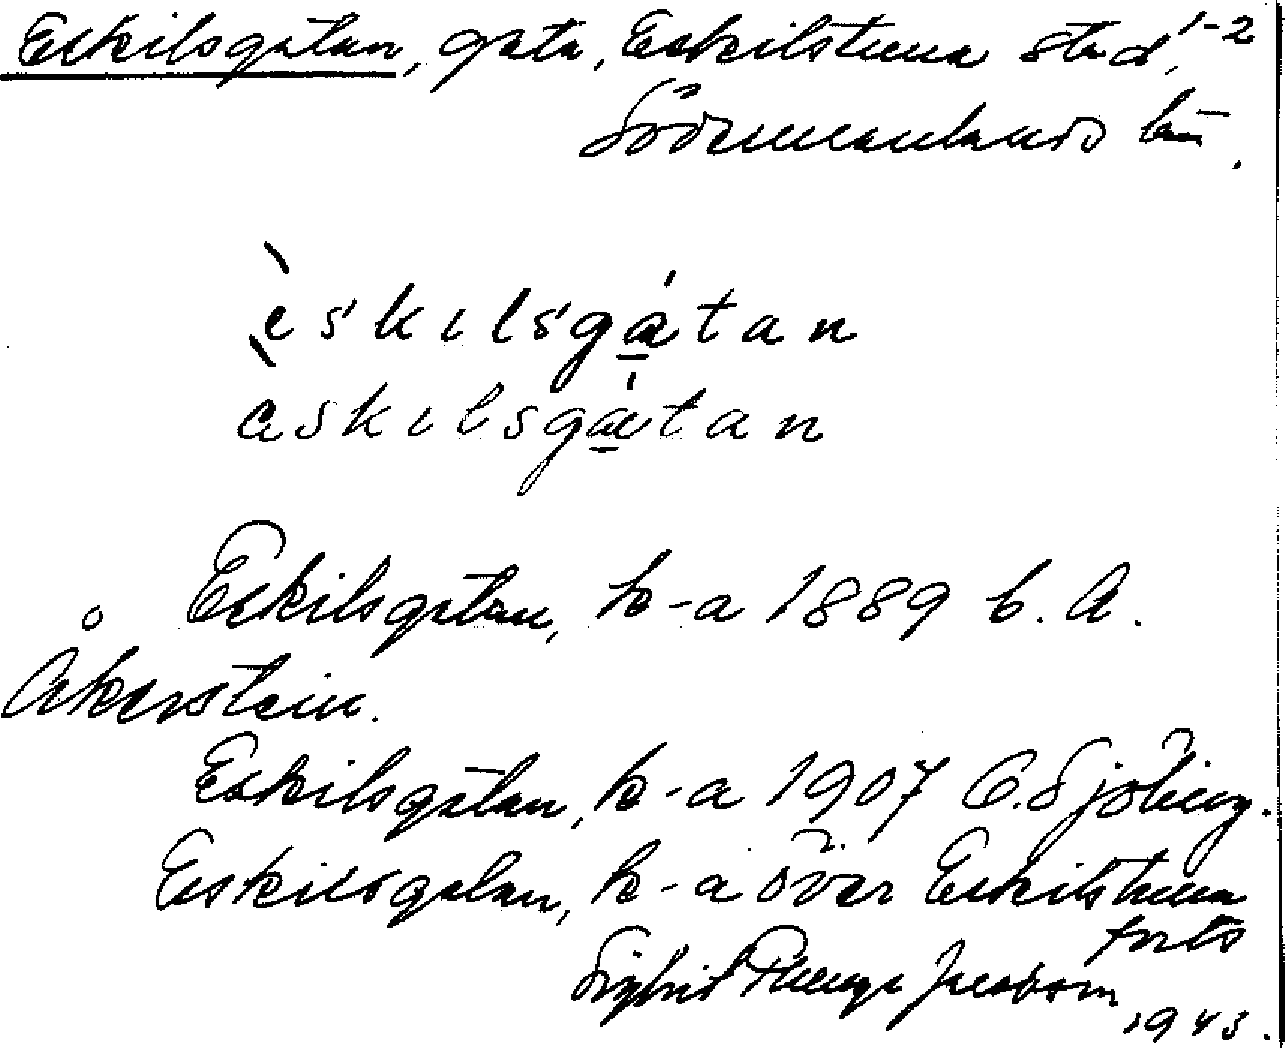 Eskilsgatan, gata, Eskilstuna stad, 1-2
Södermanlands län.
èskilsgátan
æskilsgátan
Eskilsgatan, k-a 1889 b. A.
Åkerstein.
Eskilsgatan, k-a 1907 C. Sjöberg.
Eskilsgatan, k-a över Eskilstuna
forts
Sigfrid Jacobson
1943.